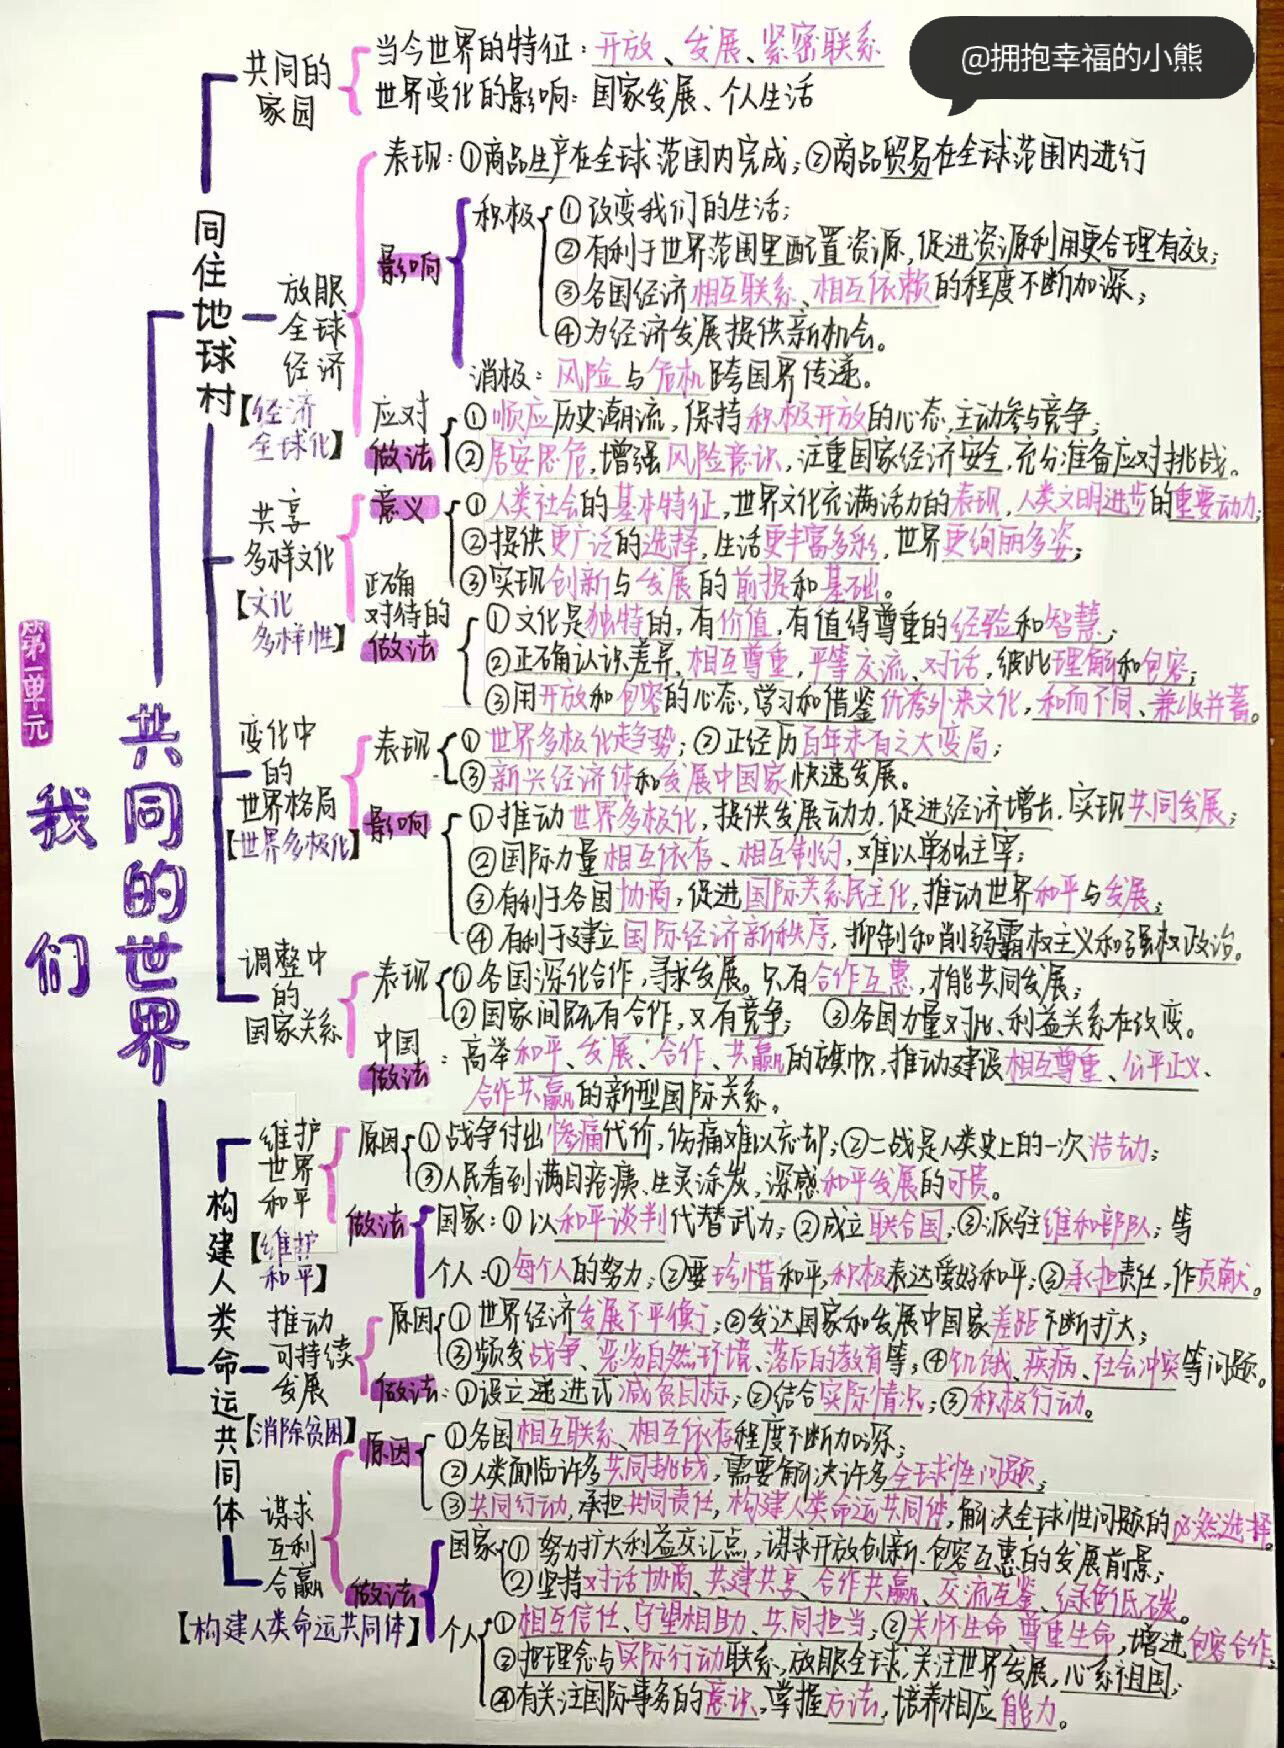 @拥抱幸福的小熊
第一单元
我们
共同的世界
同住地球村
共同的
家园
当今世界的特征：开放、发展、紧密联系
世界变化的影响：国家发展、个人生活
放眼
全球
经济
【经济
全球化】
表现：①商品生产在全球范围内完成；②商品贸易在全球范围内进行
影响
积极
①改变我们的生活；
②有利于世界范围里配置资源，促进资源利用更合理有效；
③各国经济相互联系、相互依赖的程度不断加深；
④为经济发展提供新机会。
消极：风险与危机跨国界传递。
应对
做法
①顺应历史潮流，保持积极开放的心态，主动参与竞争；
②居安思危，增强风险意识，注重国家经济安全，充分准备应对挑战。
共享
多样文化
【文化
多样性】
意义
①人类社会的基本特征，世界文化充满活力的表现，人类文明进步的重要动力；
②提供更广泛的选择，生活更丰富多彩，世界更绚丽多姿；
③实现创新与发展的前提和基础。
正确
对待的
做法
①文化是独特的，有价值，有值得尊重的经验和智慧；
②正确认识差异，相互尊重，平等交流、对话，彼此理解和包容；
③用开放和包容的心态，学习和借鉴优秀外来文化，和而不同、兼收并蓄。
变化中
的
世界格局
【世界多极化】
表现
①世界多极化趋势；②正经历百年未有之大变局；
③新兴经济体和发展中国家快速发展。
影响
①推动世界多极化，提供发展动力，促进经济增长，实现共同发展；
②国际力量相互依存、相互制约，难以单独主宰；
③有利于各国协商，促进国际关系民主化，推动世界和平与发展；
④有利于建立国际经济新秩序，抑制和削弱霸权主义和强权政治。
调整中
的
国家关系
表现
①各国深化合作，寻求发展。只有合作互惠，才能共同发展；
②国家间既有合作，又有竞争； ③各国力量对比、利益关系在改变。
中国
做法
：高举和平、发展、合作、共赢的旗帜，推动建设相互尊重、公平正义、
合作共赢的新型国际关系。
构建人类命运共同体
维护
世界
和平
【维护
和平】
原因
①战争付出惨痛代价，伤痛难以忘却；②二战是人类史上的一次浩劫；
③人民看到满目疮痍、生灵涂炭，深感和平发展的可贵。
做法
国家：①以和平谈判代替武力；②成立联合国；③派驻维和部队；等
个人：①每个人的努力；②要珍惜和平，积极表达爱好和平；③承担责任，作贡献。
推动
可持续
发展
【消除贫困】
原因
①世界经济发展不平衡；②发达国家和发展中国家差距不断扩大；
③频发战争、恶劣自然环境、落后的教育等；④饥饿、疾病、社会冲突等问题。
做法：①设立递进式减贫目标；②结合实际情况；③积极行动。
谋求
互利
合赢
【构建人类命运共同体】
原因
①各国相互联系、相互依存程度不断加深；
②人类面临许多共同挑战，需要解决许多全球性问题；
③共同行动，承担共同责任，构建人类命运共同体，解决全球性问题的必然选择。
做法
国家
①努力扩大利益交汇点，谋求开放创新、包容互惠的发展前景；
②坚持对话协商、共建共享、合作共赢、交流互鉴、绿色低碳。
个人
①相互信任、守望相助、共同担当；②关怀生命，尊重生命，增进包容合作；
③把理念与实际行动联系，放眼全球，关注世界发展，心系祖国；
④有关注国际事务的意识，掌握方法，培养相应能力。